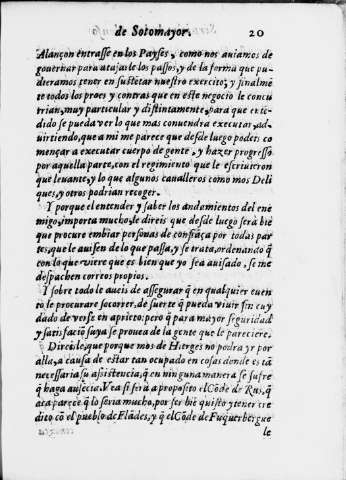 de Sotomayor. 20
Alançon entrasse en los Payses, y como nos auiamos de
gouernar para atajarle los passos, y de la forma que pu-
dieramos tener en sustẽtar nuestro exercito, y finalmẽ
te todos los proes y contras que en este negocio le concu
rrian, muy particular y distintamente, para que entẽ-
dido se pueda ver lo que mas conuendra executar, ad-
uirtiendo, que a mi me parece que desde luego podeis co
mençar a executar cuerpo de gente, y hazer progresso
por aquella parte, con el regimiento que le escriuieron
que leuante, y lo que algunos caualleros como mos Deli
ques, y otros podrian recoger.
Y porque el entender y saber los andamientos del ene
migo, importa mucho, le direis que desde luego serà biẽ
que procure embiar personas de confiãça por todas par
tes, que le auisen de lo que passa, y se trata, ordenando q̃
con lo que viere que es bien que yo sea auisado, se me
despachen correos propios.
Y sobre todo le aueis de assegurar q̃ en qualquier euen
to le procurare socorrer, de suerte q̃ pueda viuir sin cuy
dado de verse en aprieto: pero q̃ para mayor seguridad
y satisfaciõ suya se prouea de la gente que le pareciere.
Direisle, que porque mos de Hierges no podra yr por
alla, a causa de estar tan ocupado en cosas donde es tã
necessaria su assistencia, q̃ en ninguna manera se sufre
q̃ haga ausẽcia. Vea si serà a proposito el Cõde de Rus, q̃
acà parece q̃ lo seria mucho, por ser biẽ quisto y tener cre
dito cõ el pueblo de Flãdes, y q̃ el Cõde de Fuquerbergue
le